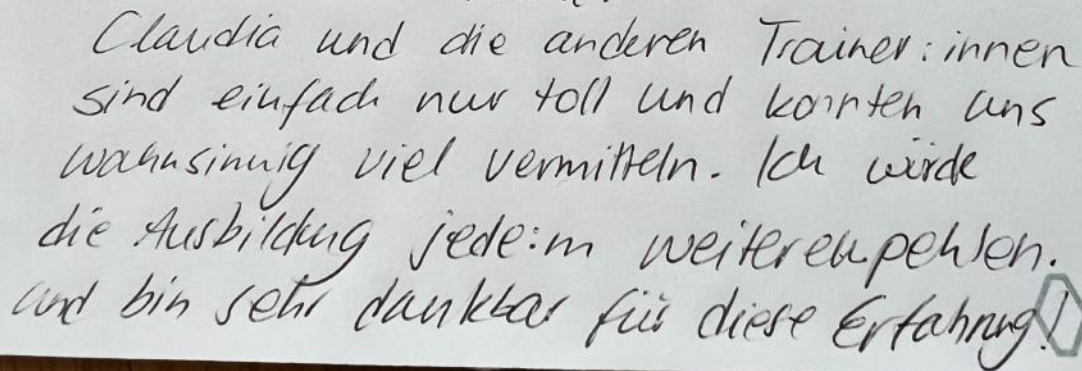 Claudia und die anderen Trainer:innen
sind einfach nur toll und konnten uns
wahnsinnig viel vermitteln. Ich würde
die Ausbildung jede:m weiterenpehlen.
und bin sehr dankbar für diese Erfahrung!